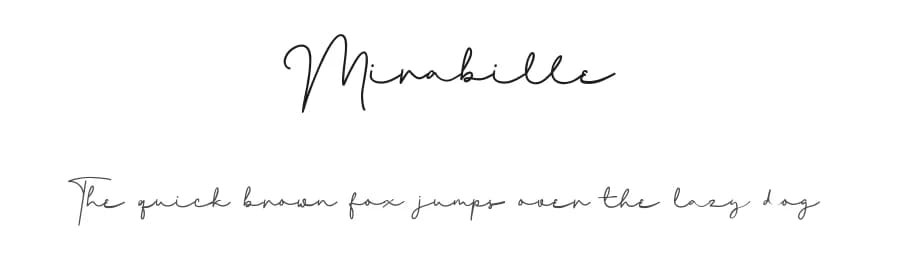 Mirabille
The quick brown fox jumps over the lazy dog